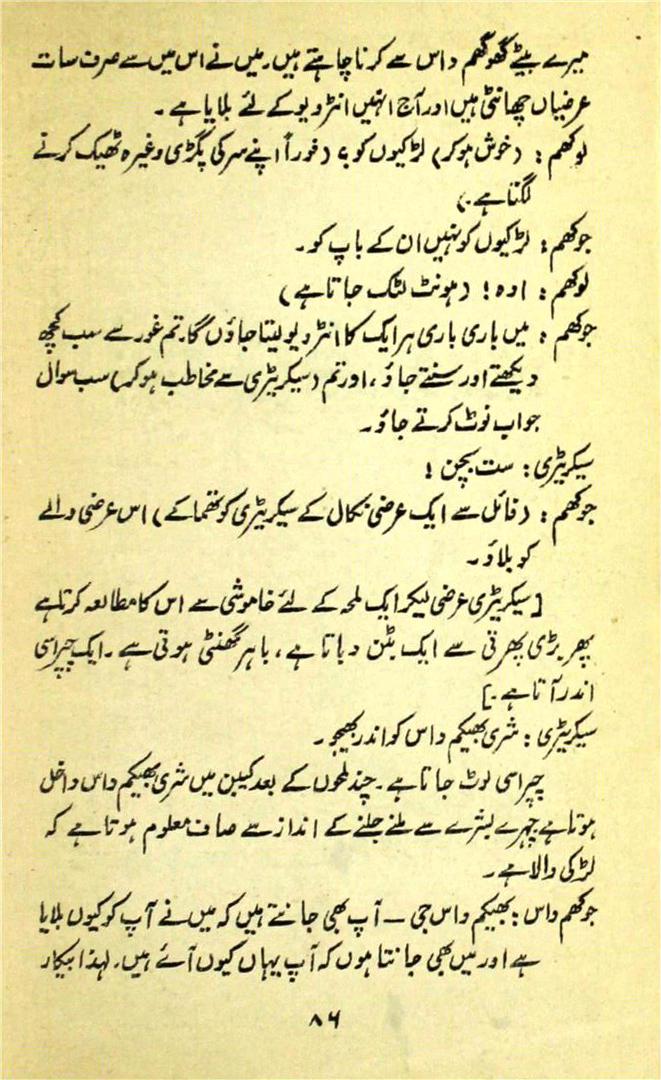 میرے بیٹے گھوگھم داس سے کرنا چاہتے ہیں۔ میں نے اس میں سے صرف سات
عرضیاں چھانٹی ہیں اور آج انہیں انٹرویو کے لئے بلایا ہے۔
لوکھم : (خوش ہوکر) لڑکیوں کو؟ (فوراً اپنے سر کی پگڑی وغیرہ ٹھیک کرنے
لگتا ہے۔)
جوکھم : لڑکیوں کو نہیں ان کے باپ کو۔
لوکھم : اوہ! (ہونٹ لٹک جاتا ہے)
جوکھم : میں باری باری ہر ایک کا انٹرویو لیتا جاؤں گا۔ تم غور سے سب کچھ
دیکھتے اور سنتے جاؤ، اور تم (سیکریٹری سے مخاطب ہوکر) سب سوال
جواب نوٹ کرتے جاؤ۔
سیکریٹری : ست بچن!
جوکھم : (فائل سے ایک عرضی نکال کے سیکریٹری کو تھما کے) اس عرضی والے
کو بلاؤ۔
[سیکریٹری عرضی لیکر ایک لمحہ کے لئے خاموشی سے اس کا مطالعہ کرتا ہے
پھر بڑی پھرتی سے ایک بٹن دباتا ہے، باہر گھنٹی ہوتی ہے۔ ایک چپراسی
اندر آتا ہے۔]
سیکریٹری : شری بھیکم داس کو اندر بھیجو۔
چپراسی لوٹ جاتا ہے۔ چند لمحوں کے بعد کیبن میں شری بھیکم داس داخل
ہوتا ہے چہرے بشرے سے ملنے جلنے کے انداز سے صاف معلوم ہوتا ہے کہ
لڑکی والا ہے۔
جوکھم داس : بھیکم داس جی — آپ بھی جانتے ہیں کہ میں نے آپ کو کیوں بلایا
ہے اور میں بھی جانتا ہوں کہ آپ یہاں کیوں آئے ہیں۔ لہذا بیکار
۸۶